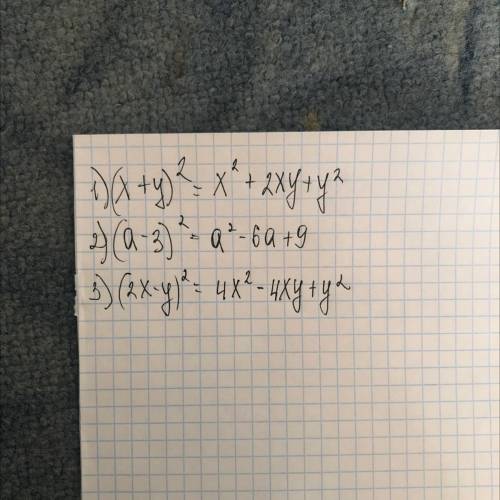 1) (x+y)² = x² + 2xy + y²
2) (a-3)² = a² - 6a + 9
3) (2x-y)² = 4x² - 4xy + y²